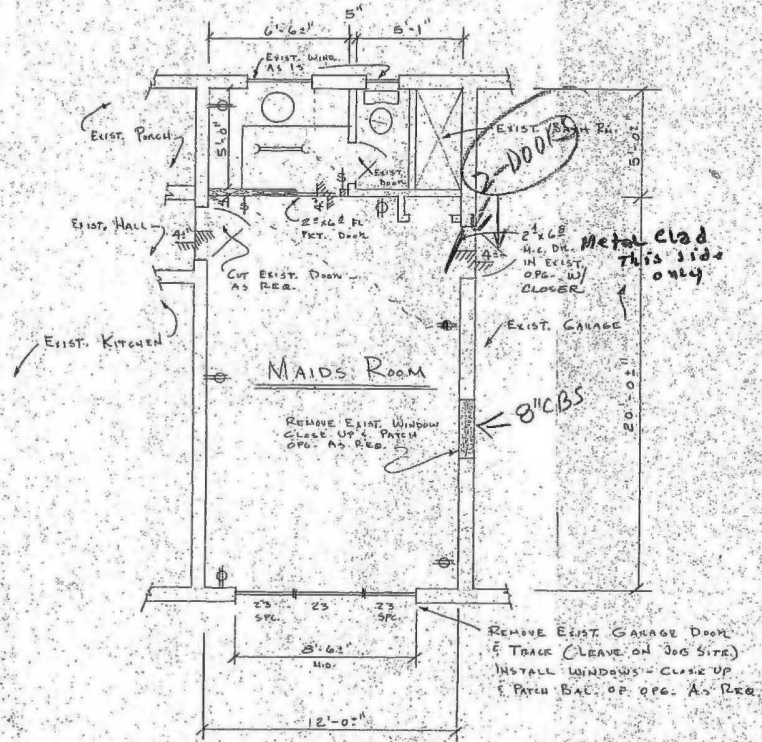 5"
6'-6±" 5'-1"
EXIST. WIND.
AS IS
EXIST. PORCH
5'-0"
EXIST. BATH RM.
2-DOORS
5'-0±"
EXIST.
DOOR
S S
EXIST. HALL
4±"
2⁰x6⁸ FL.
PKT. DOOR
CUT EXIST. DOOR
AS REQ.
M.C. DR.
IN EXIST.
OPG. W/
CLOSER
4±"
Metal Clad
This side
only
EXIST. GARAGE
EXIST. KITCHEN
MAIDS ROOM
REMOVE EXIST. WINDOW
CLOSE UP & PATCH
OPG. AS REQ.
8"CBS
20'-0±"
23 23 23
SPC. SPC.
8'-6±"
MID.
REMOVE EXIST. GARAGE DOOR
& TRACK (LEAVE ON JOB SITE)
INSTALL WINDOWS - CLOSE UP
& PATCH BAL. OF OPG. AS REQ
12'-0±"